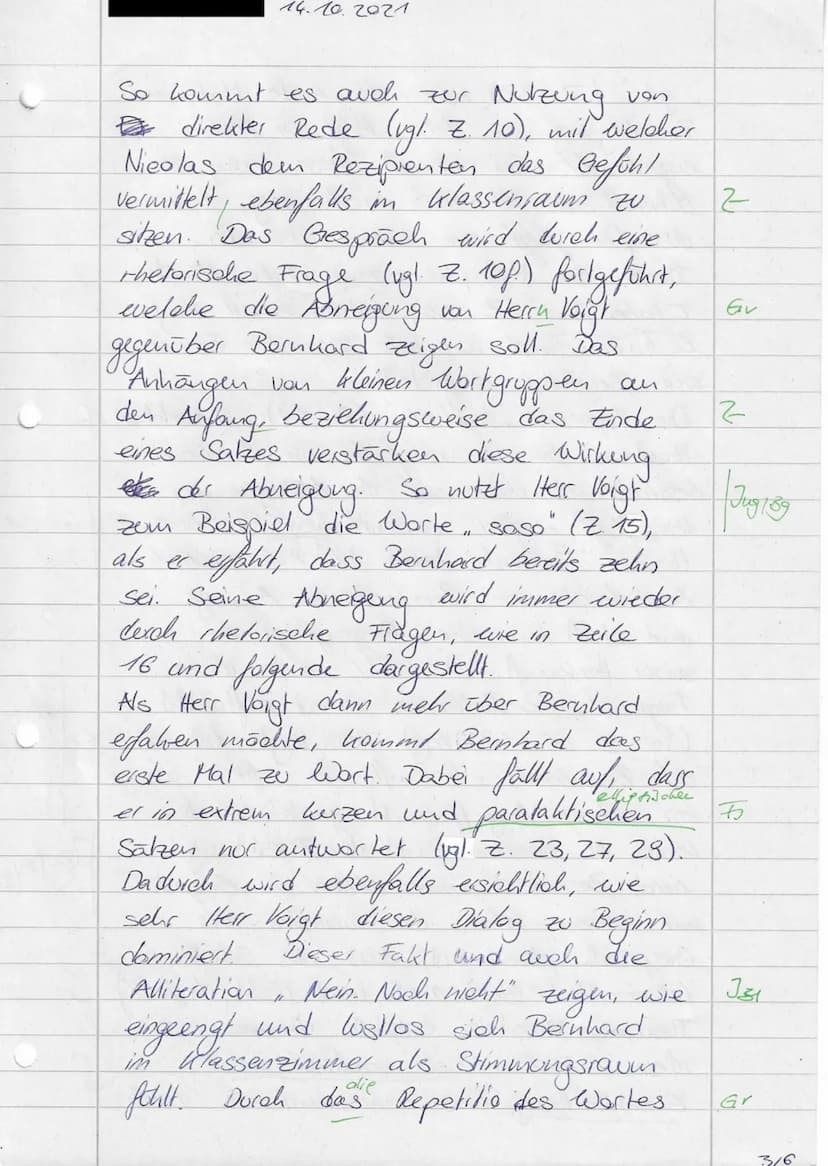 14.10.2021
So kommt es auch zur Nutzung von
direkter Rede (vgl. Z. 10), mit welcher
Nicolas dem Rezipienten das Gefühl
vermittelt, ebenfalls im Klassenraum zu Z
sitzen. Das Gespräch wird durch eine
rhetorische Frage (vgl. Z. 10f.) fortgeführt,
welche die Abneigung von Herrn Voigt Gr
gegenüber Bernhard zeigen soll. Das
Anhängen von kleinen Wortgruppen an
den Anfang, beziehungsweise das Ende Z
eines Satzes verstärken diese Wirkung
der Abneigung. So nutzt Herr Voigt
zum Beispiel die Worte „soso" (Z. 15),
als er erfährt, dass Bernhard bereits zehn
sei. Seine Abneigung wird immer wieder
durch rhetorische Fragen, wie in Zeile
16 und folgende dargestellt.
Als Herr Voigt dann mehr über Bernhard
erfahren möchte, kommt Bernhard das
erste Mal zu Wort. Dabei fällt auf, dass
elliptischen
er in extrem kurzen und parataktischen
Sätzen nur antwortet (vgl. Z. 23, 27, 29).
Dadurch wird ebenfalls ersichtlich, wie
sehr Herr Voigt diesen Dialog zu Beginn
dominiert. Dieser Fakt und auch die
Alliteration „Nein. Noch nicht" zeigen, wie
eingeengt und lustlos sich Bernhard
im Klassenzimmer als Stimmungsraum
die
fühlt. Durch das Repetitio des Wortes Gr
3/6